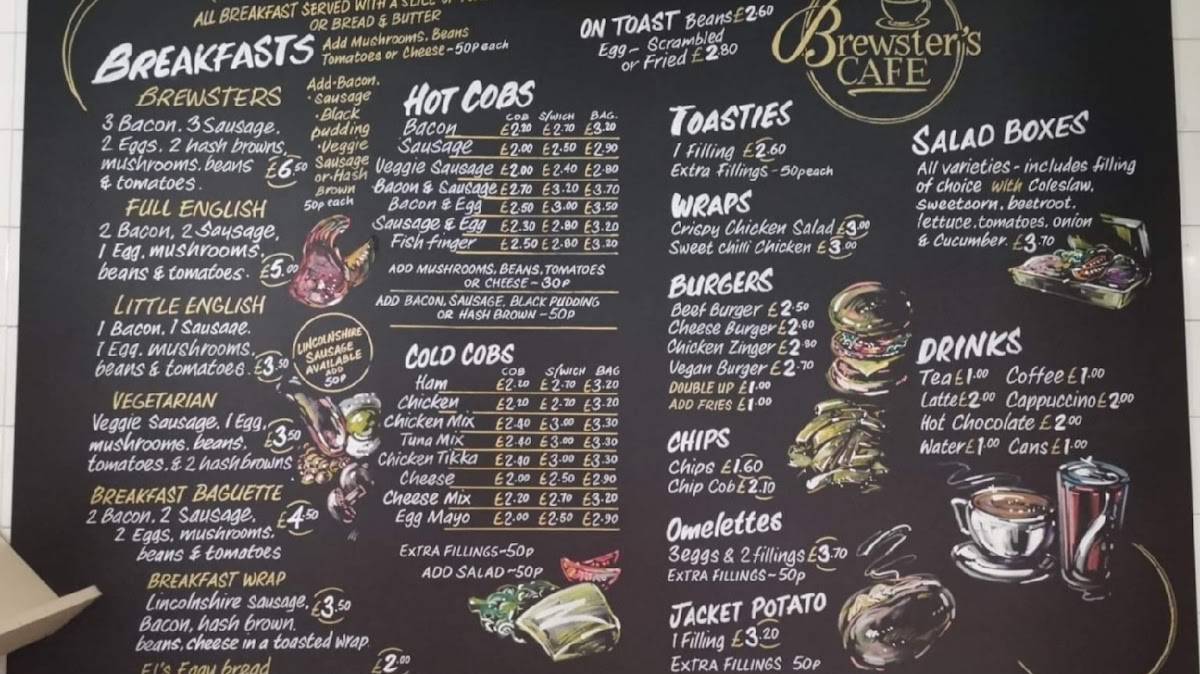 ALL BREAKFAST SERVED WITH A SLICE OF
OR BREAD & BUTTER
BREAKFASTS
Add Mushrooms. Beans
Tomatoes or Cheese - 50p each
BREWSTERS
3 Bacon. 3 Sausage.
2 Eggs. 2 hash browns.
mushrooms. beans £6.50
& tomatoes.
Add-Bacon.
· Sausage
· Black
pudding
· Veggie
Sausage
or Hash
Brown
50p each
FULL ENGLISH
2 Bacon, 2 Sausage.
1 Egg. mushrooms.
beans & tomatoes. £5.00
LITTLE ENGLISH
1 Bacon. 1 Sausage.
1 Egg. mushrooms.
beans & tomatoes. £3.50
LINCOLNSHIRE
SAUSAGE
AVAILABLE
ADD
50p
VEGETARIAN
Veggie Sausage. 1 Egg.
mushrooms. beans. £3.50
tomatoes. & 2 hash browns
BREAKFAST BAGUETTE
2 Bacon. 2 Sausage. £4.50
2 Eggs, mushrooms.
beans & tomatoes
BREAKFAST WRAP
Lincolnshire Sausage. £3.50
Bacon, hash brown.
beans, cheese in a toasted wrap
El's Eggy bread £2.00
HOT COBS
COB S/WICH BAG.
Bacon £2.20 £2.70 £3.20
Sausage £2.00 £2.50 £2.90
Veggie Sausage £2.00 £2.40 £2.80
Bacon & Sausage £2.70 £3.20 £3.70
Bacon & Egg £2.50 £3.00 £3.50
Sausage & Egg £2.30 £2.80 £3.20
Fish finger £2.50 £2.80 £3.20
ADD MUSHROOMS, BEANS, TOMATOES
OR CHEESE - 30p
ADD BACON, SAUSAGE, BLACK PUDDING
OR HASH BROWN - 50p
COLD COBS
COB S/WICH BAG
Ham £2.20 £2.70 £3.20
Chicken £2.20 £2.70 £3.20
Chicken Mix £2.40 £3.00 £3.30
Tuna Mix £2.40 £3.00 £3.30
Chicken Tikka £2.40 £3.00 £3.30
Cheese £2.00 £2.50 £2.90
Cheese Mix £2.20 £2.70 £3.20
Egg Mayo £2.00 £2.50 £2.90
EXTRA FILLINGS - 50p
ADD SALAD - 50p
ON TOAST Beans £2.60
Egg - Scrambled
or Fried £2.80
TOASTIES
1 Filling £2.60
Extra Fillings - 50p each
WRAPS
Crispy Chicken Salad £3.00
Sweet chilli Chicken £3.00
BURGERS
Beef Burger £2.50
Cheese Burger £2.80
Chicken Zinger £2.80
Vegan Burger £2.70
DOUBLE UP £1.00
ADD FRIES £1.00
CHIPS
Chips £1.60
Chip Cob £2.10
Omelettes
3 eggs & 2 fillings £3.70
EXTRA FILLINGS - 50p
JACKET POTATO
1 Filling £3.20
EXTRA FILLINGS 50p
Brewster's
CAFE
SALAD BOXES
All varieties - includes filling
of choice with Coleslaw,
sweetcorn, beetroot,
lettuce. tomatoes. onion
& Cucumber. £3.70
DRINKS
Tea £1.00 Coffee £1.00
Latte £2.00 Cappuccino £2.00
Hot Chocolate £2.00
Water £1.00 Cans £1.00